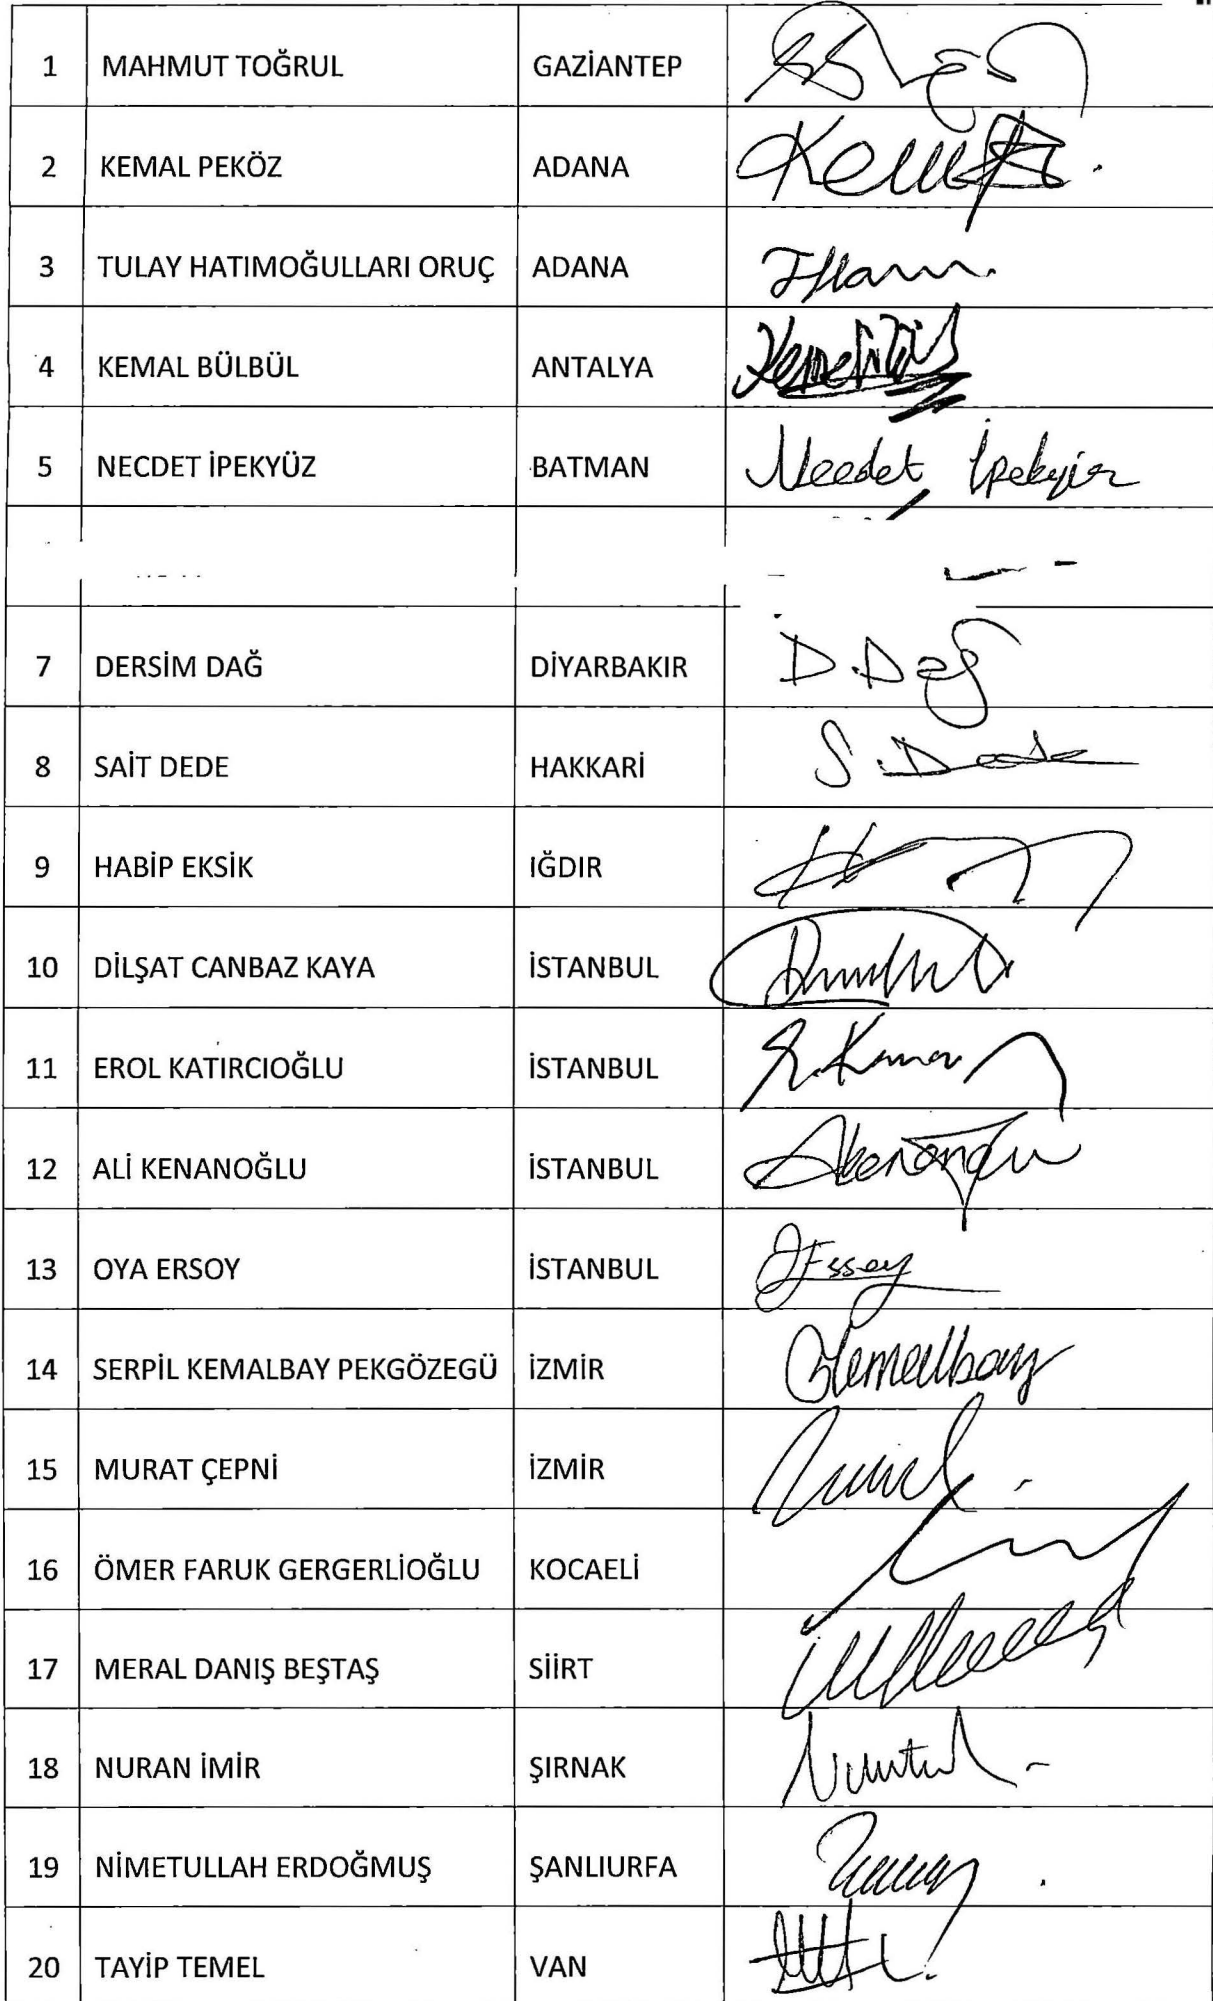 1 MAHMUT TOĞRUL GAZİANTEP
2 KEMAL PEKÖZ ADANA
3 TULAY HATIMOĞULLARI ORUÇ ADANA
4 KEMAL BÜLBÜL ANTALYA
5 NECDET İPEKYÜZ BATMAN Necdet İpekyüz
7 DERSİM DAĞ DİYARBAKIR D.Dağ
8 SAİT DEDE HAKKARİ S.Dede
9 HABİP EKSİK IĞDIR
10 DİLŞAT CANBAZ KAYA İSTANBUL
11 EROL KATIRCIOĞLU İSTANBUL
12 ALİ KENANOĞLU İSTANBUL
13 OYA ERSOY İSTANBUL
14 SERPİL KEMALBAY PEKGÖZEGÜ İZMİR
15 MURAT ÇEPNİ İZMİR
16 ÖMER FARUK GERGERLİOĞLU KOCAELİ
17 MERAL DANIŞ BEŞTAŞ SİİRT
18 NURAN İMİR ŞIRNAK
19 NİMETULLAH ERDOĞMUŞ ŞANLIURFA
20 TAYİP TEMEL VAN